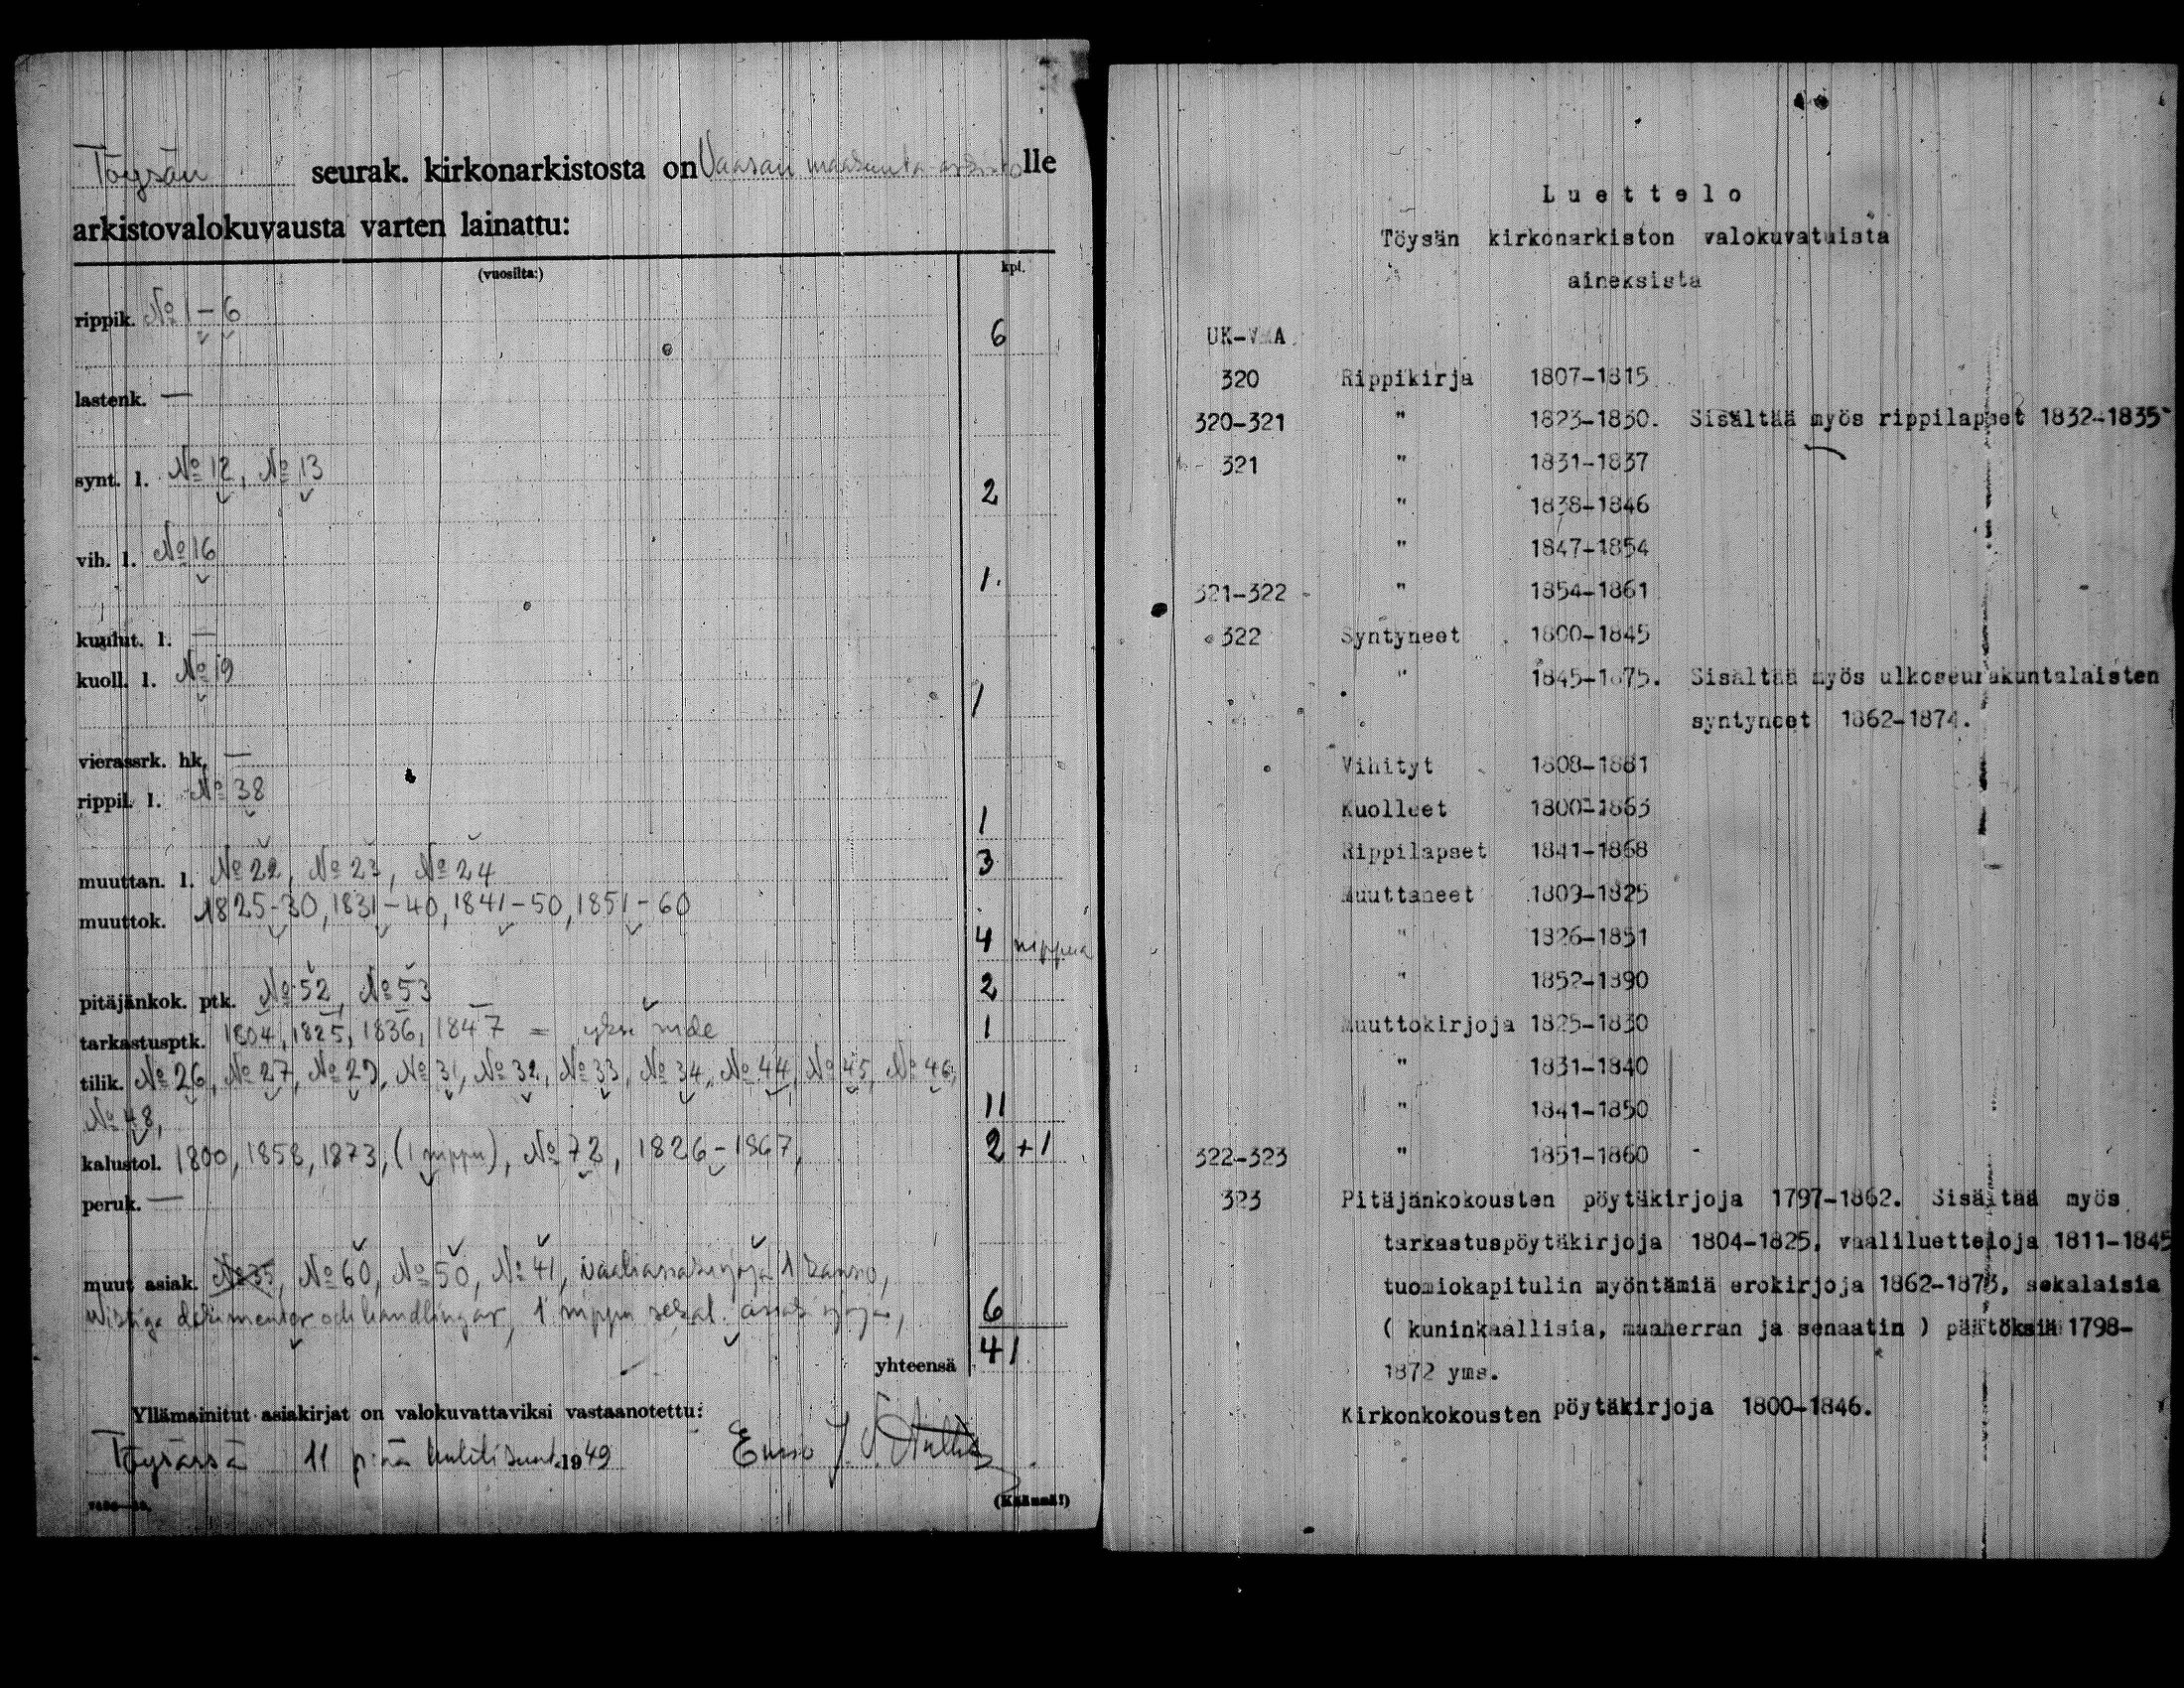 Töysän seurak. kirkonarkistosta on Vaasan maakunta-arkistolle
arkistovalokuvausta varten lainattu:
(vuosilta:) kpl.
rippik. № 1-6 6
lastenk. —
synt. l. № 12, № 13 2
vih. l. № 16 1.
kuulut. l. —
kuoll. l. № 19 1
vierassrk. hk. —
rippil. l. № 38 1
muuttan. l. № 22, № 23, № 24 3
muuttok. 1825-30, 1831-40, 1841-50, 1851-60 4 nippua
pitäjänkok. ptk. № 52, № 53 2
tarkastusptk. 1804, 1825, 1836, 1847 = yksi nide 1
tilik. № 26, № 27, № 29, № 31, № 32, № 33, № 34, № 44, № 45, № 46,
№ 48, 11
kalustol. 1800, 1858, 1873, (1 nippu), № 72, 1826-1867, 2 +1
peruk. —
muut asiak. № 35, № 60, № 50, № 41, vaaliasiakirjoja 1 kansio,
dokumenter och handlingar, 1 nippu sekal. asiakirjoja, 6
yhteensä 41
Yllämainitut asiakirjat on valokuvattaviksi vastaanotettu:
Töysässä 11 p:nä huhtikuun 1949
(Käännä!)
Luettelo
Töysän kirkonarkiston valokuvatuista
aineksista
UK-VMA
320 Rippikirja 1807-1815
320-321 " 1823-1830. Sisältää myös rippilapset 1832-1835
321 " 1831-1837
" 1838-1846
" 1847-1854
321-322 " 1854-1861
322 Syntyneet 1800-1845
" 1845-1875. Sisältää myös ulkoseurakuntalaisten
syntyneet 1862-1874.
Vihityt 1808-1881
Kuolleet 1800-1863
Rippilapset 1841-1868
Muuttaneet 1809-1825
" 1826-1851
" 1852-1890
Muuttokirjoja 1825-1830
" 1831-1840
" 1841-1850
322-323 " 1851-1860
323 Pitäjänkokousten pöytäkirjoja 1797-1862. Sisältää myös
tarkastuspöytäkirjoja 1804-1825, vaaliluetteloja 1811-1845
tuomiokapitulin myöntämiä erokirjoja 1862-1873, sekalaisia
( kuninkaallisia, maaherran ja senaatin ) päätöksiä 1798-
1872 yms.
Kirkonkokousten pöytäkirjoja 1800-1846.